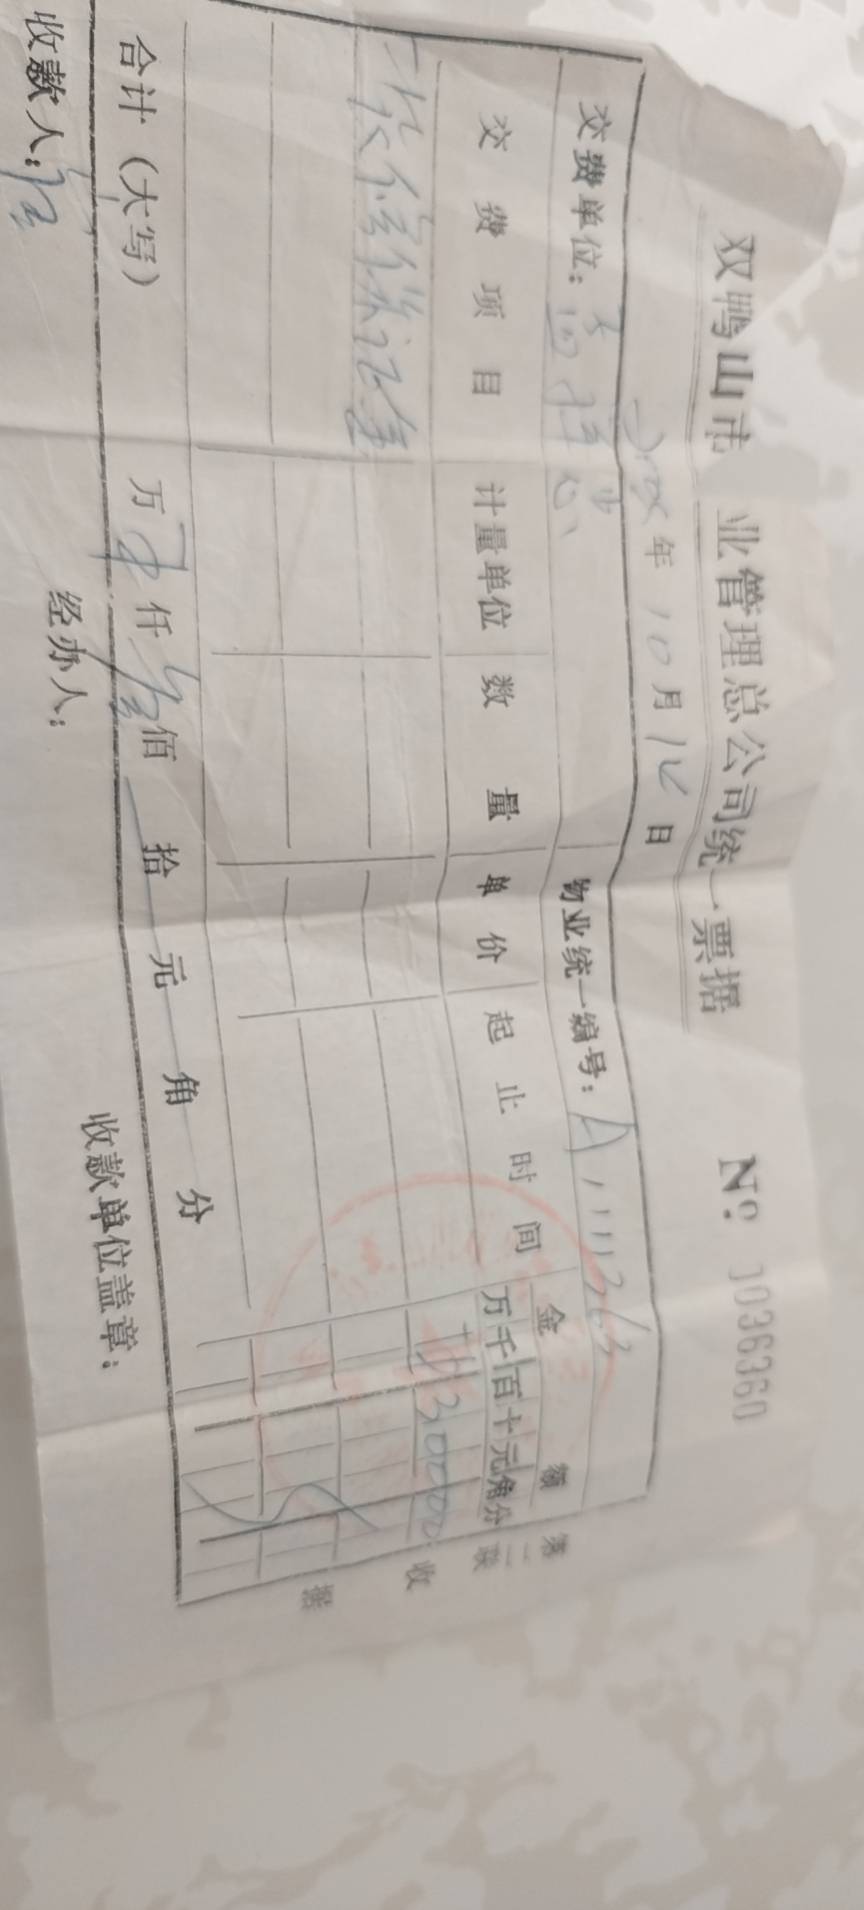 双鸭山市 业管理总公司统一票据 № 1036360
年 10月 日
交费单位: 物业统一编号: A111363
交费项目 计量单位 数量 单价 起止时间 金额
万千百十元角分
装修保证金 ¥30000
合计(大写) 万 仟 佰 拾 元 角 分
收款人: 经办人: 收款单位盖章:
第二联 收据